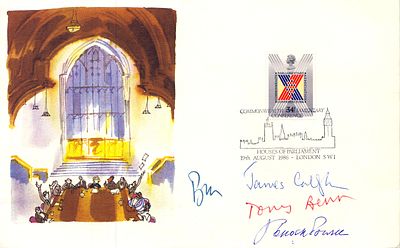 34P
COMMONWEALTH PARLIAMENTARY
CONFERENCE
HOUSES OF PARLIAMENT
19th AUGUST 1986 - LONDON SW1
James Callaghan
Tony Benn
J Enoch Powell